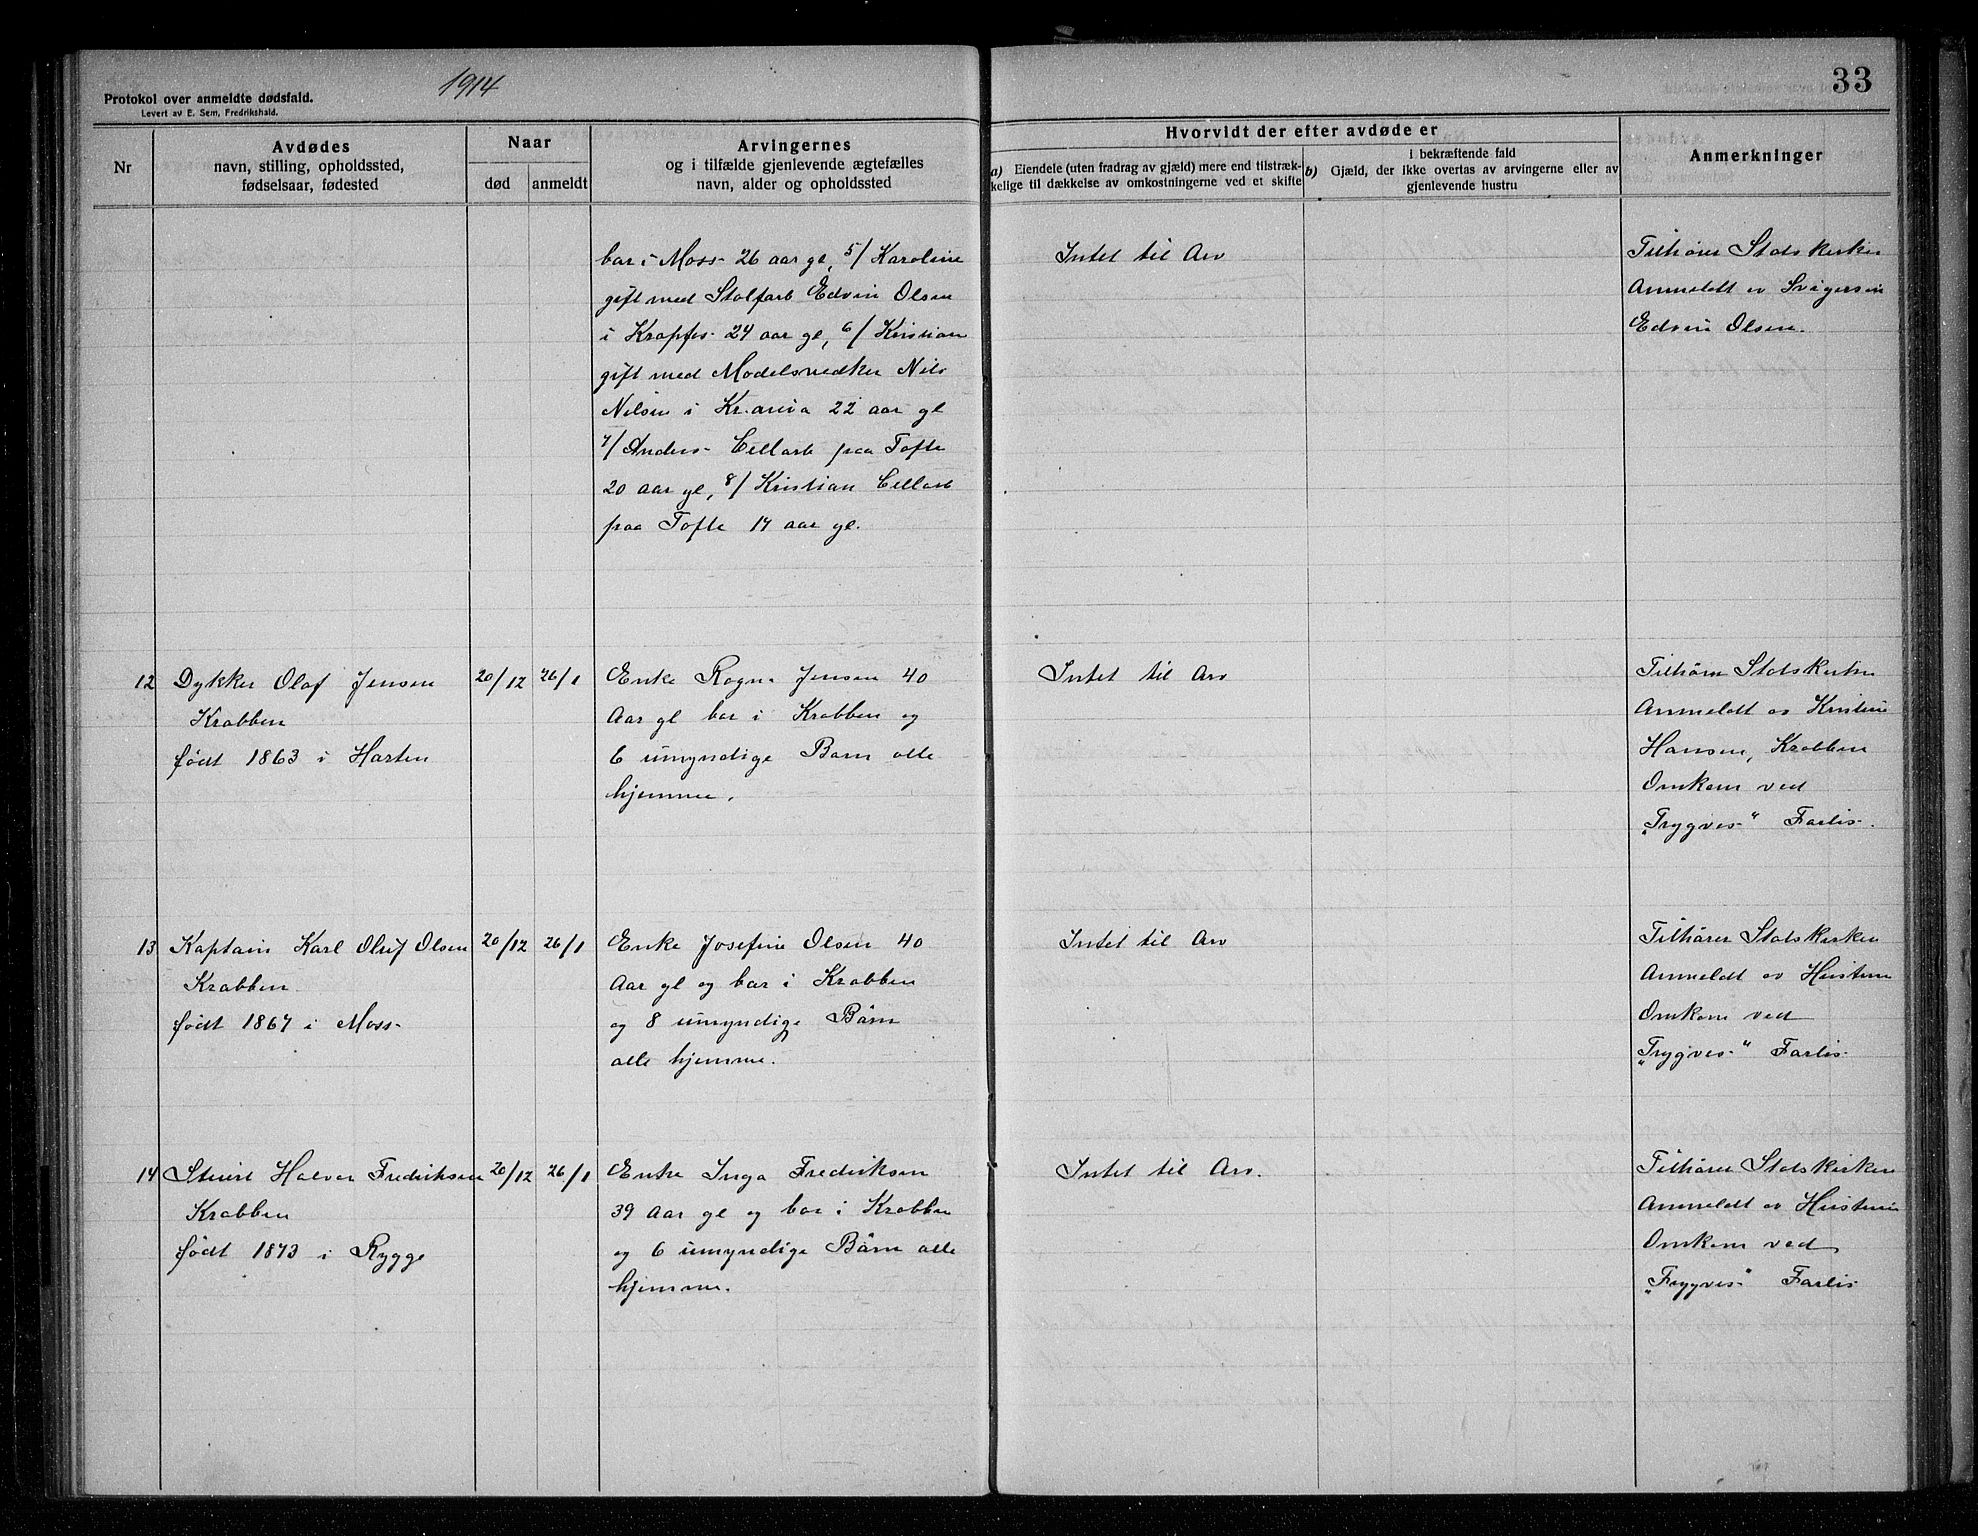 1914
33
Protokol over anmeldte dødsfald.
Levert av E. Sem, Fredrikshald.
Nr
Avdødes
navn, stilling, opholdssted,
fødselsaar, fødested
Naar
død
anmeldt
Arvingernes
og i tilfælde gjenlevende ægtefælles
navn, alder og opholdssted
Hvorvidt der efter avdøde er
a) Eiendele (uten fradrag av gjæld) mere end tilstræk-
kelige til dækkelse av omkostningerne ved et skifte
I bekræftende fald
b) Gjæld, der ikke overtas av arvingerne eller av
gjenlevende hustru
Anmerkninger
bor i Moss 26 aar gl, 5/ Karoline
gift med Stolfarb Edvin Olsen
i Krapfos 24 aar gl, 6/ Kristian
gift med Modelsnedker Nils
Nilsen i Kr.ania 22 aar gl
7/ Anders Cellarb paa Tofte
20 aar gl, 8/ Kristian Cellarb
paa Tofte 17 aar gl.
Intet til Arv
Tilhører Statskirken
Anmeldt av Svigersøn
Edvin Olsen.
12
Dykker Olaf Jensen
Krabben
født 1863 i
20/12
26/1
Enke Ragna Jensen 40
Aar gl bor i Krabben og
6 umyndige Barn alle
hjemme.
Intet til Arv
Tilhører Statskirken
Anmeldt av Kristine
Hansen, Krabben
Omkom ved
"Trygves" Forlis.
13
Kaptain Karl Oluf Olsen
Krabben
født 1867 i Moss
20/12
26/1
Enke Josefine Olsen 40
Aar gl og bor i Krabben
og 8 umyndige Børn
alle hjemme.
Intet til Arv
Tilhører Statskirken
Anmeldt av Hustruen
Omkom ved
"Trygves" Forlis
14
Stuert Halvor Fredriksen
Krabben
født 1873 i Rygge
20/12
26/1
Enke Inga Fredriksen
39 Aar gl og bor i Krabben
og 6 umyndige Børn alle
hjemme.
Intet til Arv.
Tilhører Statskirken
Anmeldt av Hustruen
Omkom ved
"Trygves" Forlis